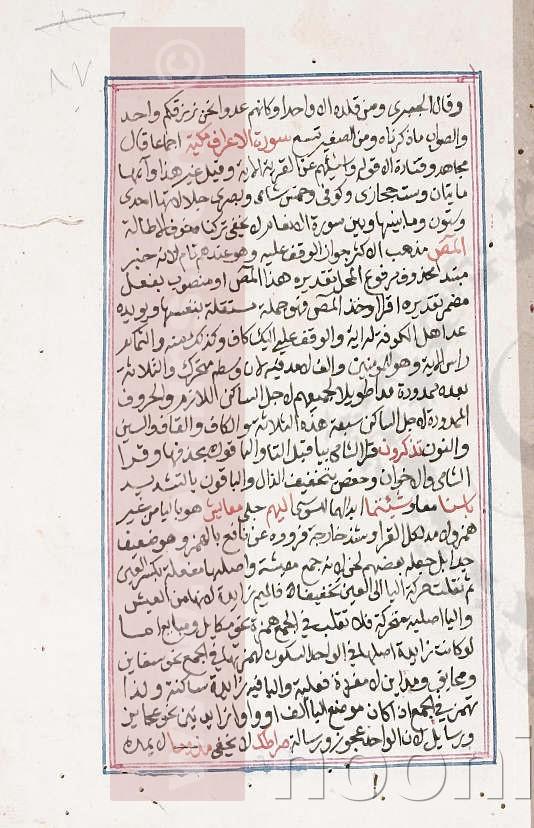 ٨٧
وقال الجعبري ومن قلده الا واحدا وكانهم عدوا نحن نرزقكم واحد
والصواب ما ذكرناه ومن الصغير تسع سورة الاعراف مكية اجماعا قال
مجاهد وقتادة الا قوله واسئلهم عن القرية الاية وقيل غير هذا وآيها
مايتان وست حجازي وكوفي وخمس شامي وبصري جلالاتها احدى
وستون وما بينها وبين سورة الانعام لا يخفى تركناه خوف الاطالة
المص مذهب الاكثر جواز الوقف عليه وهو عندهم تام لانه خبر
مبتدا محذوف مرفوع المحل تقديره هذا المص او منصوب بفعل
مضمر تقديره اقرا وخذ المص فهو جملة مستقلة بنفسها ويؤيده
عد اهل الكوفة له اية والوقف على اليك كاف وكذلك منه والتمام
راس الاية وهو للمومنين والف لا مد فيه لان وسطه متحرك والثلاثة
بعده ممدودة مدا طويلا لجميعهم لاجل الساكن اللازم والحروف
الممدودة لاجل الساكن سبعة هذه الثلاثة والكاف والقاف والسين
والنون تذكرون قرا الشامي بيا قبل التا والباقون بحذفها وقرا
الشامي والاخوان وحفص بتخفيف الذال والباقون بالتشديد
باسنا معا وشئتما ابدالهما للسوسي اليهم جلي معايش هو بالياء من غير
همز ولا مد لكل القرا وشذ خارجة فرواه عن نافع بالهمز وهو ضعيف
جدا بل جعله بعضهم لحن لانه جمع معيشة واصلها مفعلة بكسر العين
ثم نقلت حركة اليا الى العين تخفيفا فالميم زايدة لانها من العيش
واليا اصلية متحركة فلا تقلب في الجمع همزة نحو مكايل ومبايع اما
لو كانت زايدة اصلها في الواحد السكون لهمزتها في الجمع نحو سفاين
ومدا​ين لا مفردة فعلية واليا فيه زايدة ساكنة وكذا
تهمز في الجمع اذا كان موضع اليا الف او واو زايدتين نحو عجايز
ورسايل لان الواحد عجوز ورسالة صراطك لا يخفى مذءوما لا يمده
noon